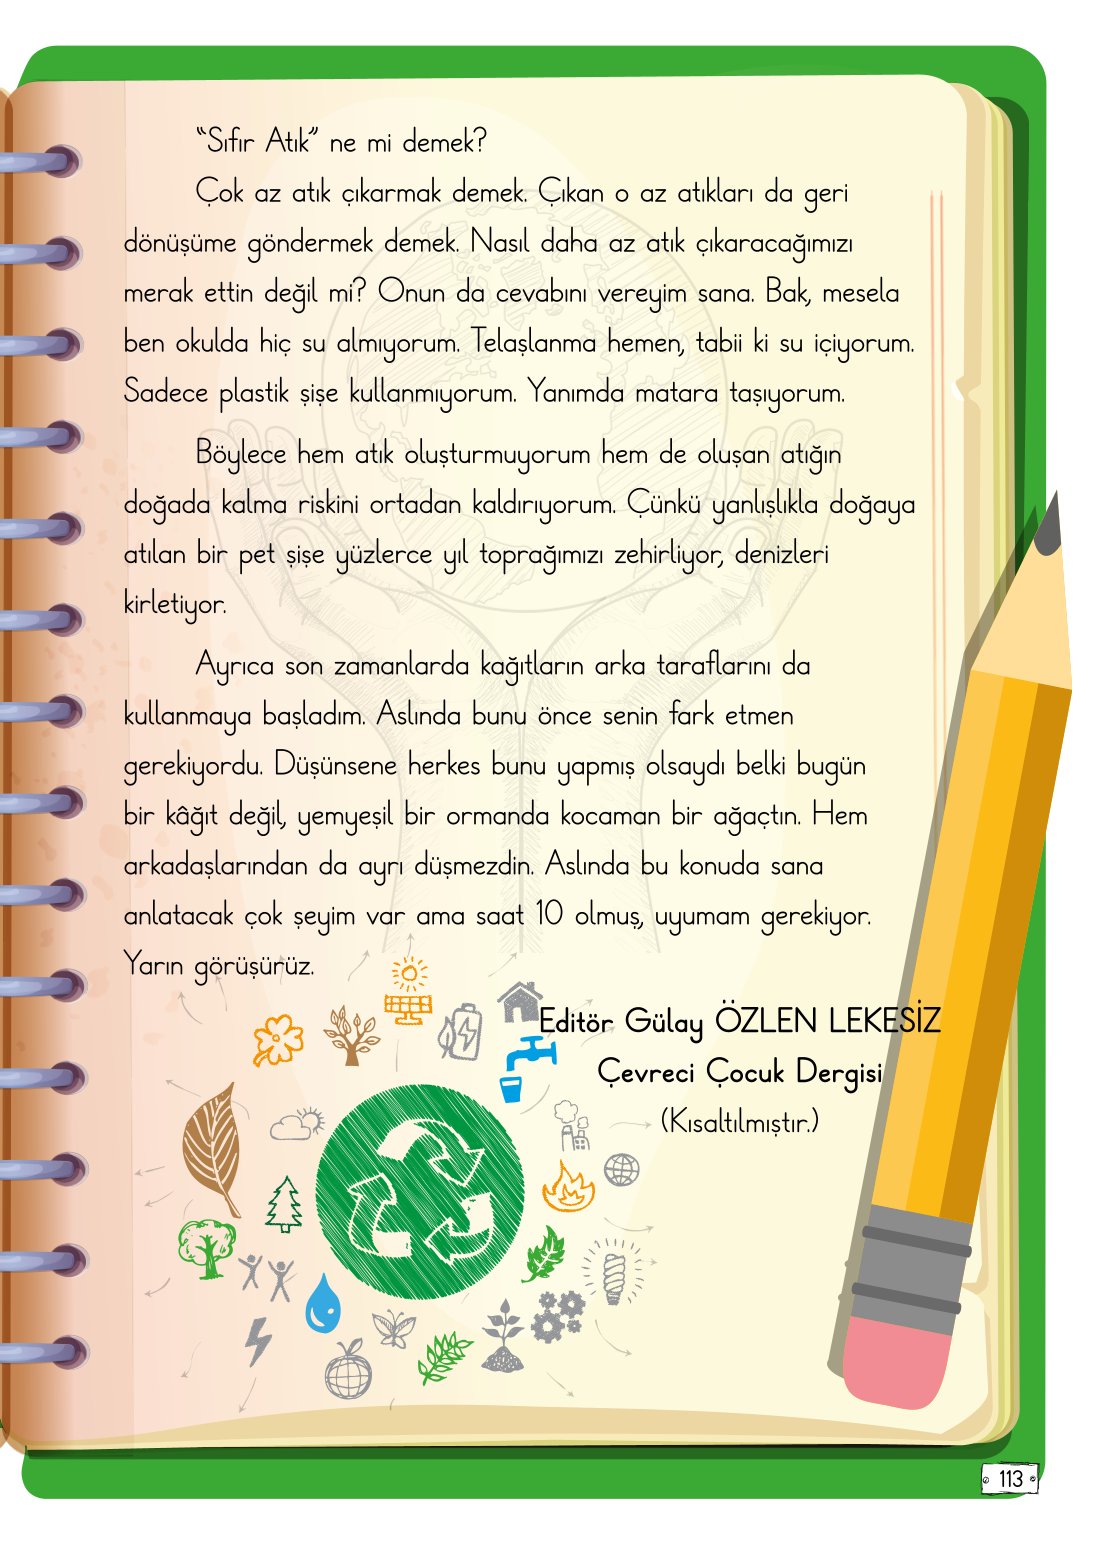 “Sıfır Atık” ne mi demek?
Çok az atık çıkarmak demek. Çıkan o az atıkları da geri
dönüşüme göndermek demek. Nasıl daha az atık çıkaracağımızı
merak ettin değil mi? Onun da cevabını vereyim sana. Bak, mesela
ben okulda hiç su almıyorum. Telaşlanma hemen, tabii ki su içiyorum.
Sadece plastik şişe kullanmıyorum. Yanımda matara taşıyorum.
Böylece hem atık oluşturmuyorum hem de oluşan atığın
doğada kalma riskini ortadan kaldırıyorum. Çünkü yanlışlıkla doğaya
atılan bir pet şişe yüzlerce yıl toprağımızı zehirliyor, denizleri
kirletiyor.
Ayrıca son zamanlarda kağıtların arka taraflarını da
kullanmaya başladım. Aslında bunu önce senin fark etmen
gerekiyordu. Düşünsene herkes bunu yapmış olsaydı belki bugün
bir kâğıt değil, yemyeşil bir ormanda kocaman bir ağaçtın. Hem
arkadaşlarından da ayrı düşmezdin. Aslında bu konuda sana
anlatacak çok şeyim var ama saat 10 olmuş, uyumam gerekiyor.
Yarın görüşürüz.
Editör Gülay ÖZLEN LEKESİZ
Çevreci Çocuk Dergisi
(Kısaltılmıştır.)
113